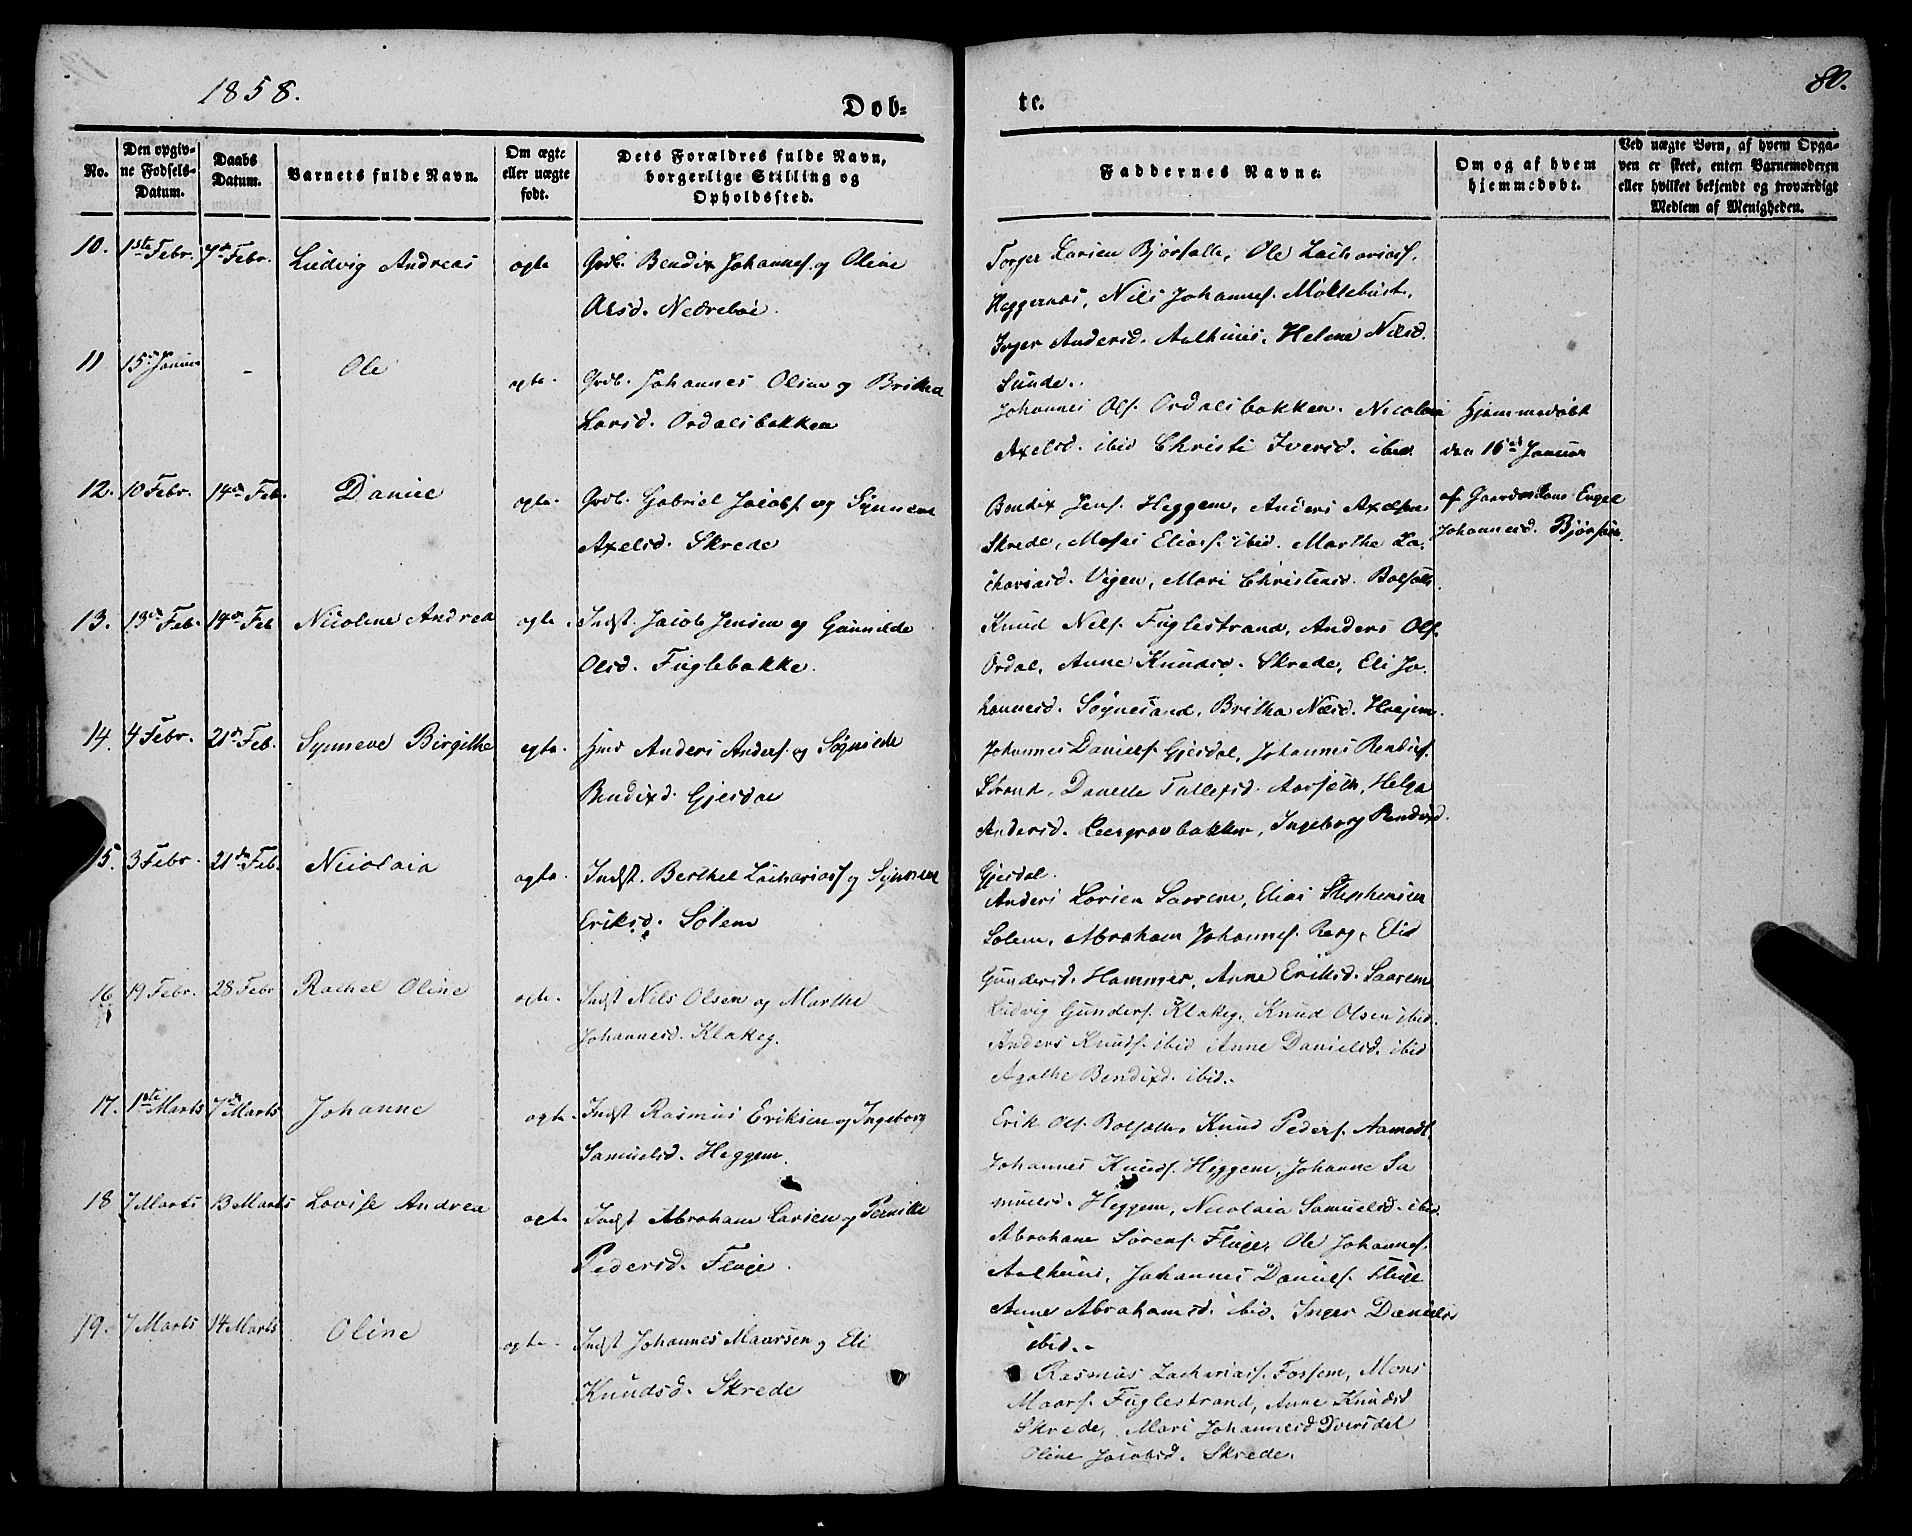 1858.
Døb=
te.
80.
No.
Den opgiv=
ne Fødsels=
Datum.
Daabs
Datum.
Barnets fulde Navn.
Om ægte
eller uægte
født.
Dets Forældres fulde Navn,
borgerlige Stilling og
Opholdssted.
Faddernes Navne.
Om og af hvem
hjemmedøbt.
Ved uægte Børn, af hvem Opga=
ven er skeet, enten Barnemoderen
eller hvilket bekjendt og troværdigt
Medlem af Menigheden.
10. 1ste Febr. 7de Febr. Ludvig Andreas ægte Grdb. Bendix Johannes. og Oline
Olsd. Nedrebøe.
Torger Larsen Bjørsætt, Ole Zachariass.
Heggernæs, Nils Johannes. Møklebust.
Inger Andersd. Aalhuus, Helene Nilsd.
Sunde.
11 15de Januar - Ole ægte. Grdb. Johannes Olsen og Britha
Larsd. Ordalsbakken
Johannes Ols. Ordalsbakken. Nicolaia
Axelsd. ibid Christi Iversd. ibid.
Hjemmedøbt
den 16de Januar
af Gaardmands Kone Engel
Johannesd. Bjørsæt.
12. 10 Febr. 14de Feb. Daniel ægte. Grdb. Gabriel Jacobs. og Synneve
Axelsd. Skrede
Bendix Jens. Heggem, Anders Axelsen
Skrede, Moses Elias. ibid. Marthe Za=
chariasd. Vigen, Mari Christensd. Bolsætt.
13. 13de Feb. 14de Feb Nicoline Andrea ægte. Indst. Jacob Jensen og Gunnilde
Olsd. Fuglebakke.
Knud Nils. Fuglestrand, Anders Ols.
Ordal, Anne Knudsd. Skrede, Eli Jo=
hannesd. Søgnesand, Britha Nilsd.
14. 4 Febr. 21de Feb. Synneve Birgithe ægte. Anders Anders. og Søgnilde
Bendixd. Gjesdal
Johannes Daniels. Gjesdal, Johannes Bendixs.
Strand, Danelle Tollefsd. Aarsæth, Helga
Andersd. Leergravbakken, Ingeborg Bendixd.
Gjesdal.
15. 3 Febr. 21de Feb. Nicolaia ægte. Indst. Berthel Zacharias. og Synneve
Eriksd. Solem
Anders Larsen Saarem, Elias Stephensen
Solem, Abraham Johannes. Berg, Elid
Gundersd. Hammer, Anne Eriksd. Saarem
16 19 Febr. 28 Febr Rachel Oline ægte. Indst Nils Olsen og Marthe
Johannesd. Klakeg.
Ludvig Gunders. Klakeg, Knud Olsen ibid.
Anders Knuds. ibid Anne Danielsd. ibid
Agathe Bendixd. ibid.
17. 1ste Marts 7de Marts Johanne ægte. Indst Rasmus Eriksen og Ingeborg
Samuelsd. Heggem.
Erik Ols. Bolsætt, Knud Peders. Aamodt
Johannes Knuds. Heggem, Johanne Sa
muelsd. Heggem, Nicolaia Samuelsd. ibid.
18 7 Marts 13 Marts Lovise Andrea ægte Indst Abraham Larsen og Pernille
Pedersd. Fluge.
Abraham Sørens. Fluge, Ole Johannes.
Aalhuus, Johannes Daniels. Fluge
Anne Abrahamsd. ibid. Inger Danielsd
ibid.
19. 7 Marts 14 Marts Oline ægte. Indst Johannes Maursen og Eli
Knudsd. Skrede
Rasmus Zacharias. Fossem, Mons
Maars. Fuglestrand, Anne Knudsd
Skrede, Mari Johannesd Dversdal
Oline Jacobsd. Skrede.